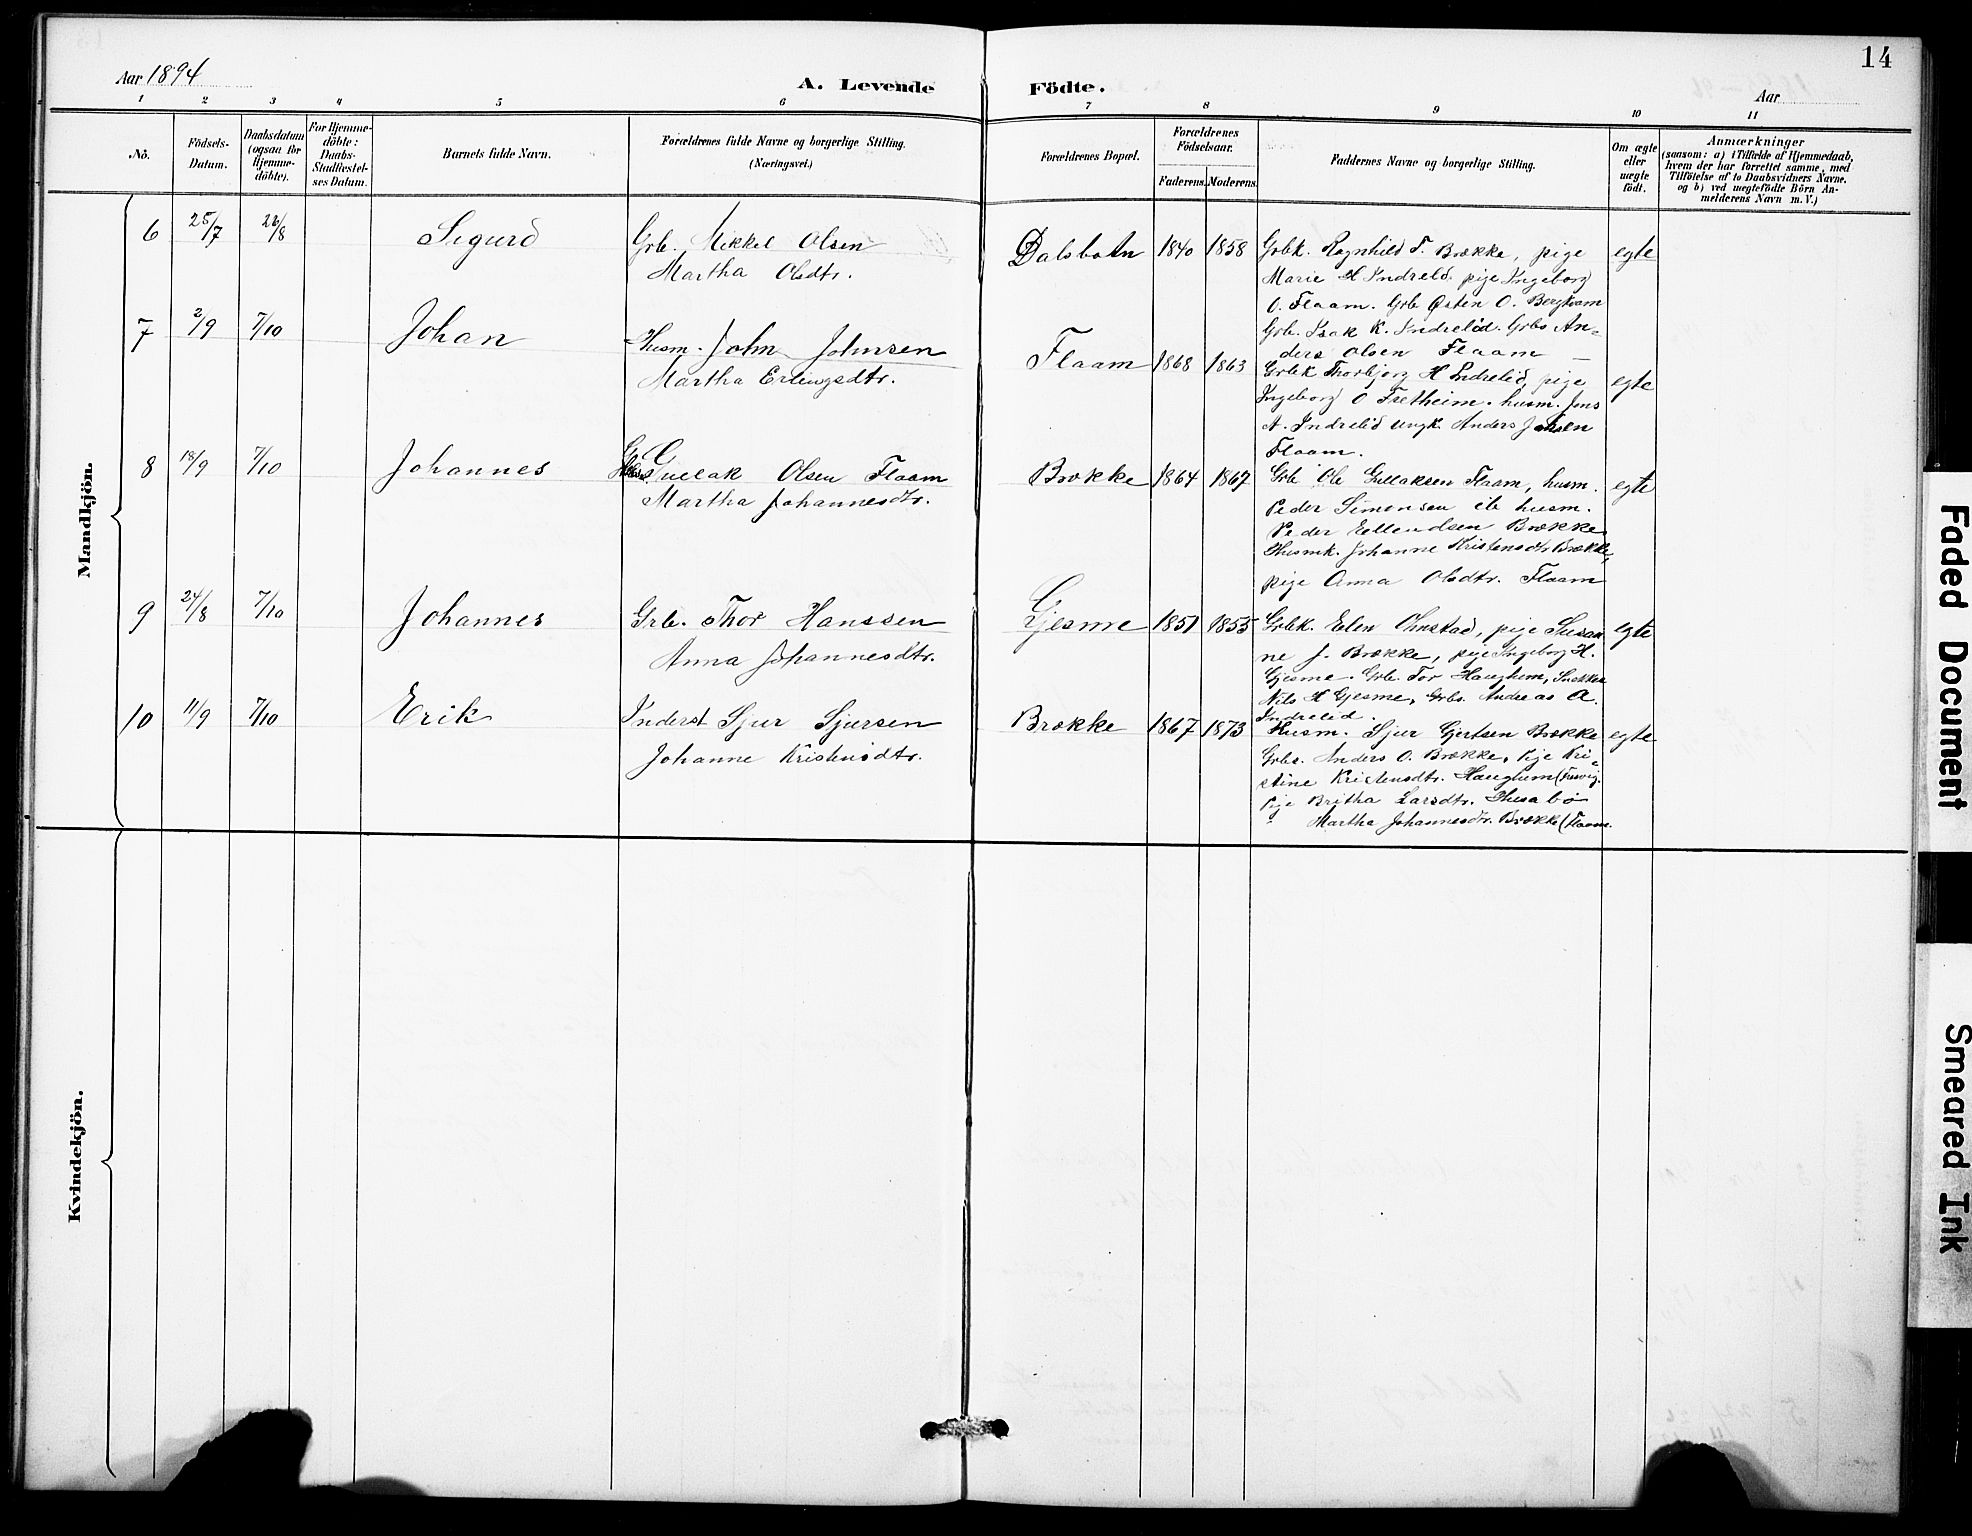 14
Aar 1894
A. Levende Födte.
Aar
1 2 3 4 5 6 7 8 9 10 11
No.
Födsels-Datum.
Daabsdatum (ogsaa for Hjemme-döbte).
For Hjemme-döbte: Daabs-Stadfæstel-ses Datum.
Barnets fulde Navn.
Forældrenes fulde Navne og borgerlige Stilling. (Næringsvei.)
Forældrenes Bopæl.
Forældrenes Födselsaar.
Faderens. Moderens.
Faddernes Navne og borgerlige Stilling.
Om ægte eller uægte födt.
Anmærkninger
(saasom: a) i Tilfælde af Hjemmedaab,
hvem der har forrettet samme, med
Tilföielse af to Daabsvidners Navne.
og b) ved uægtefödte Börn An-
melderens Navn m. V.)
Mandkjön.
6 25/7 26/8 Sigurd
Grb. Mikkel Olsen
Martha Olsdtr.
Dalsbotn 1840 1858
Grbk. Ragnhild T. Brække, pige
Marie H Indrelid. pige Ingeborg
O. Flaam. Grb Østen O. Bergkvam
Grb. Isak K. Indrelid. Grbs An-
ders Olsen Flaam
egte
7 2/9 7/10 Johan
Husm. John Johnsen
Martha Erlingsdtr.
Flaam 1868 1863
Grbk Thorbjorg H Indrelid, pige
Ingeborg O Fretheim. husm. Jens
A. Indrelid ungk. Anders Johsen
Flaam.
egte
8 18/9 7/10 Johannes
Gullak Olsen Flaam
Martha Johannesdtr.
Brække 1864 1867
Grb Ole Gullaksen Flaam, husm.
Peder Simonsen ib husm.
Peder Ellendsen Brække
Husmk. Johanne Kristensdtr Brække,
pige Anna Olsdtr. Flaam
egte
9 24/8 7/10 Johannes
Grb. Thor Hanssen
Anna Johannesdtr.
Gjesme 1851 1855
Grbk. Elen Ohnstad, pige Susan
ne J. Brække, pige Ingeborg H.
Gjesme. Grb. Tor Haughum, Snekker
Nils H Gjesme, Grbs. Andreas A.
Indrelid.
egte
10 11/9 7/10 Erik
Inderst Sjur Sjursen
Johanne Kristensdtr.
Brække 1867 1873
Husm. Sjur Gjertsen Brække
Grbs. Anders O. Brække, Pige Kri-
stine Kristensdtr. Haughum
Pige Britha Larsdtr. Husabø
Martha Johannesdtr. Brække (Flaam.
egte
Kvindekjön.
Faded Document
Smeared Ink